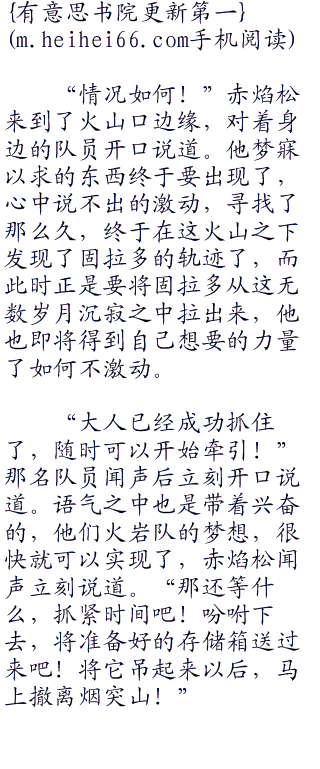 {有意思书院更新第一}
(m.heihei66.com手机阅读)
“情况如何！”赤焰松
来到了火山口边缘，对着身
边的队员开口说道。他梦寐
以求的东西终于要出现了，
心中说不出的激动，寻找了
那么久，终于在这火山之下
发现了固拉多的轨迹了，而
此时正是要将固拉多从这无
数岁月沉寂之中拉出来，他
也即将得到自己想要的力量
了如何不激动。
“大人已经成功抓住
了，随时可以开始牵引！”
那名队员闻声后立刻开口说
道。语气之中也是带着兴奋
的，他们火岩队的梦想，很
快就可以实现了，赤焰松闻
声立刻说道。“那还等什
么，抓紧时间吧！吩咐下
去，将准备好的存储箱送过
来吧！将它吊起来以后，马
上撤离烟突山！”